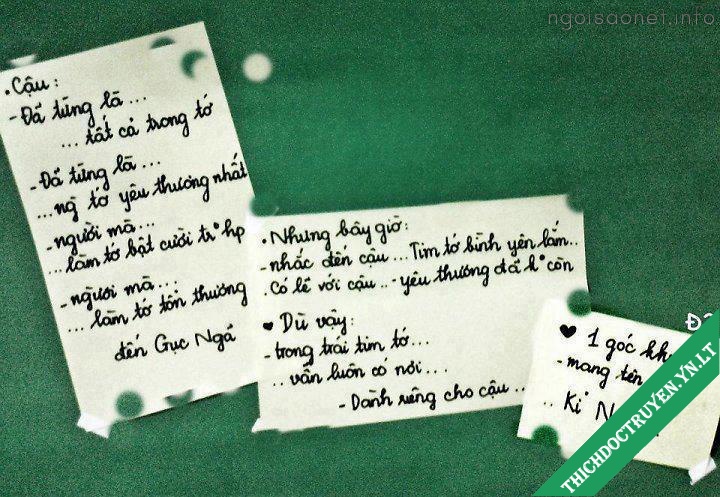 ngoisaonet.info
• Cậu :
- Đã từng là ...
... tất cả trong tớ
- Đã từng là ...
... ng` tớ yêu thương nhất
- người mà ...
... làm tớ bật cười tr° hp
- người mà ...
... làm tớ tổn thương
đến Gục Ngã
• Nhưng bây giờ:
- nhắc đến cậu ... Tim tớ bình yên lắm..
. Có lẽ với cậu .. - yêu thương đã k° còn
♥ Dù vậy:
- trong trái tim tớ ...
.. vẫn luôn có nơi ...
- Dành riêng cho cậu ..
♥ 1 góc
- mang tên
.. Kỉ
THICHDOCTRUYEN.YN.LT